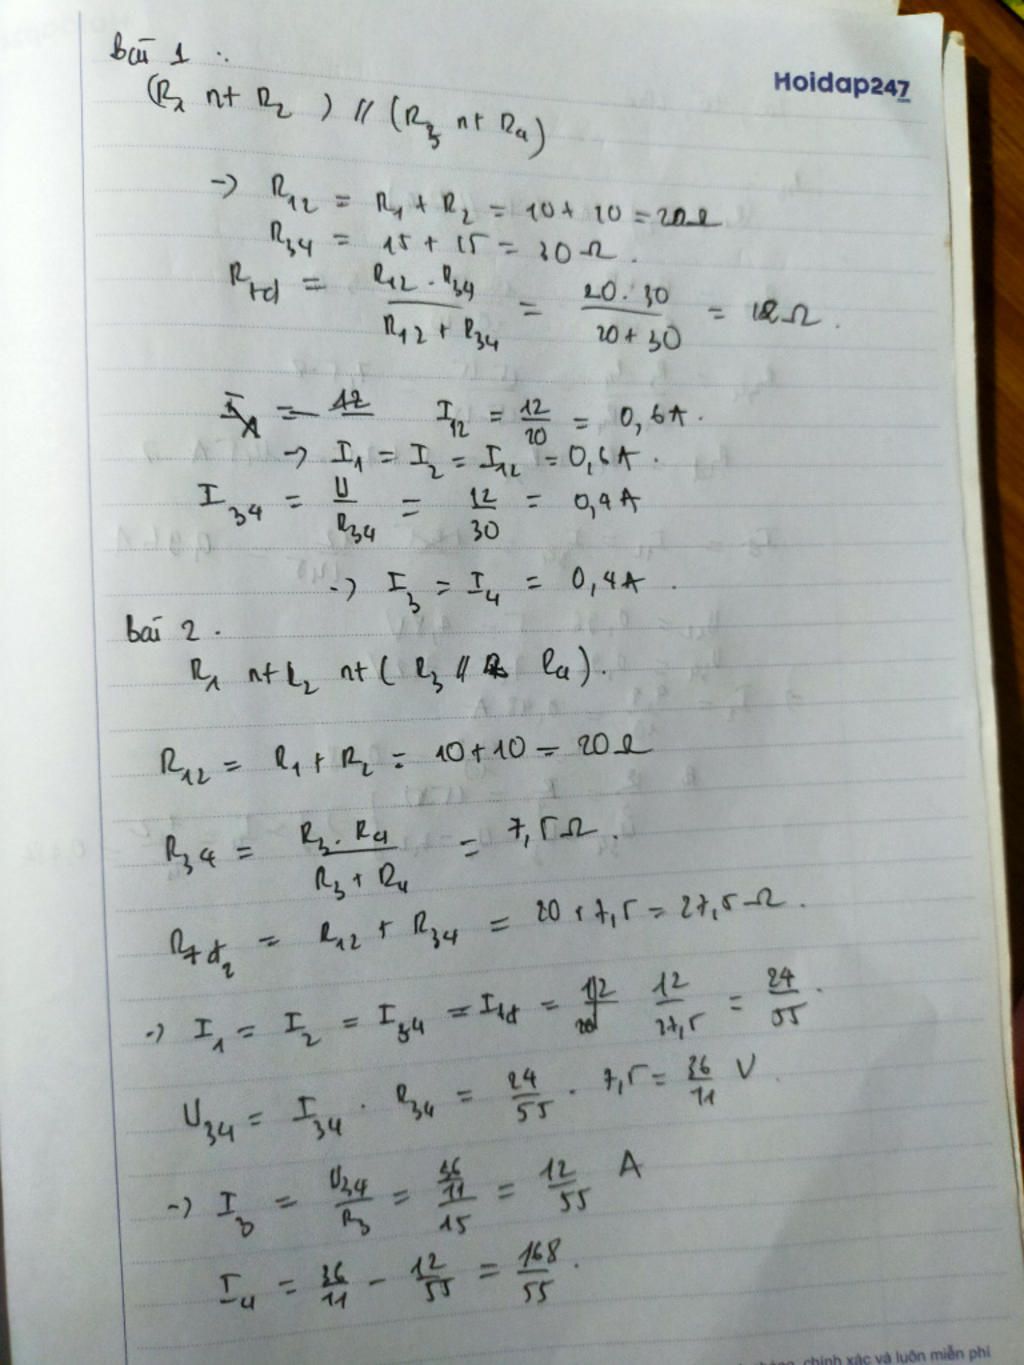 Bài 1 :
Hoidap247
(R1 nt R2) // (R3 nt R4)
-> R12 = R1 + R2 = 10 + 10 = 20Ω
R34 = 15 + 15 = 30Ω.
Rtd = R12 . R34 / R12 + R34 = 20 . 30 / 20 + 30 = 12Ω.
IA = 12 I12 = 12/20 = 0,6A.
-> I1 = I2 = I12 = 0,6A.
I34 = U/R34 = 12/30 = 0,4A
-> I3 = I4 = 0,4A.
bài 2.
R1 nt R2 nt ( R3 // R4).
R12 = R1 + R2 = 10 + 10 = 20Ω
R34 = R3 . R4 / R3 + R4 = 7,5Ω.
Rtd2 = R12 + R34 = 20 + 7,5 = 27,5Ω.
-> I1 = I2 = I34 = Itd = 12/20 12/27,5 = 24/55.
U34 = I34 . R34 = 24/55 . 7,5 = 36/11 V.
-> I3 = U34/R3 = 36/11/15 = 12/55 A
I4 = 36/11 - 12/55 = 168/55.
chính xác và luôn miễn phí